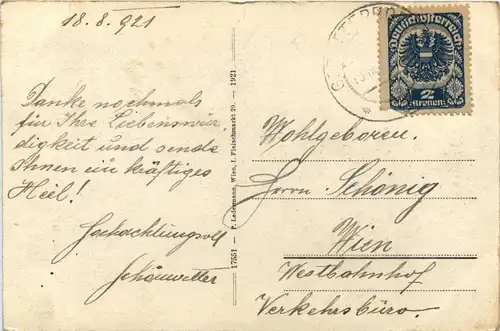 18.8.921
Danke nochmals
für Ihre Liebenswür
digkeit und sende
Ihnen ein kräftiges
Heil!
Hochachtungsvoll
Schönwetter
17551 — P. Ledermann, Wien, I. Fleischmarkt 20. — 1921
Deutschösterreich
2
Kronen
Wohlgeboren.
Herrn Schönig
Wien
Westbahnhof
Verkehrsbüro.